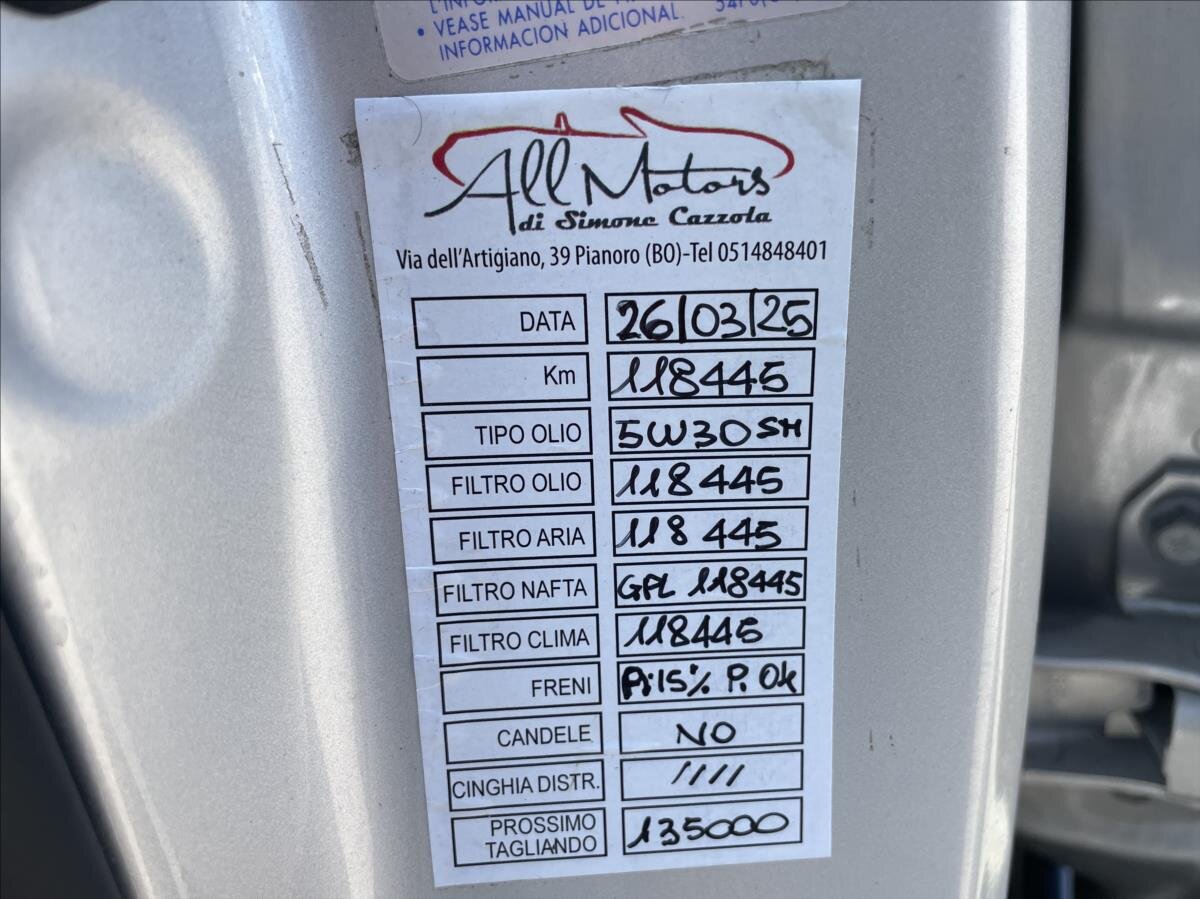 • VEASE MANUAL DE
INFORMACION ADICIONAL.
All Motors
di Simone Cazzola
Via dell'Artigiano, 39 Pianoro (BO)-Tel 0514848401
DATA 26/03/25
Km 118445
TIPO OLIO 5W30 SM
FILTRO OLIO 118445
FILTRO ARIA 118445
FILTRO NAFTA GPL 118445
FILTRO CLIMA 118445
FRENI A:15% P. Ok
CANDELE NO
CINGHIA DISTR. ////
PROSSIMO
TAGLIANDO 135000